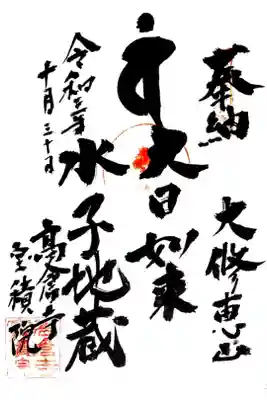 奉納
大修恵山
大日如来
水子地蔵
令和三年
十月三十日
高倉寺
宝積院